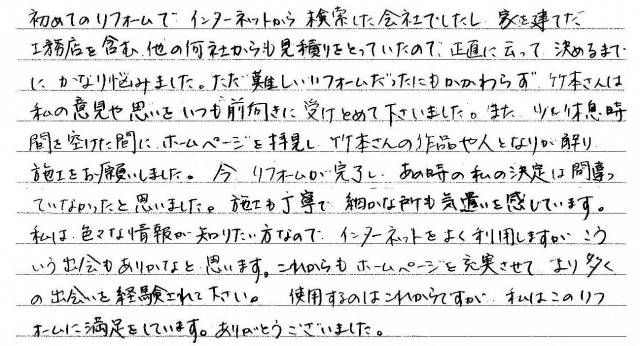 初めてのリフォームで インターネットから 検索した会社でしたし 家を建てた
工務店を含む 他の何社からも見積りをとっていたので、正直に云って 決めるまで
に かなり悩みました。ただ 難しいリフォームだったにもかかわらず 竹本さんは
私の意見や思いを いつも前向きに 受けとめて下さいました。また 少し休息時
間を空けた間に ホームページを拝見し 竹本さんの作品や人となりが解り
施工をお願いしました。 今 リフォームが完了し あの時の私の決定は間違っ
ていなかったと思いました。施工も丁寧で 細かな所も気遣いを感じています。
私は 色々な情報が知りたい方なので インターネットをよく利用しますが こう
いう出会もありかなと思います。これからもホームページを充実させて より多く
の出会いを経験されて下さい。 使用するのはこれからですが 私はこのリフ
ォームに満足をしています。ありがとうございました。